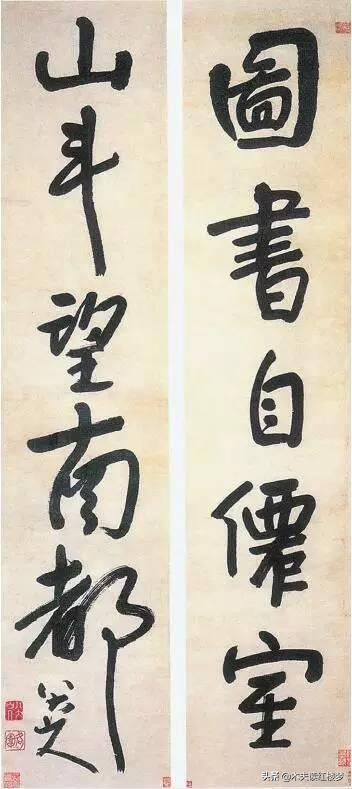 圖書自僊室
山斗望南都
八大山人
头条 红楼梦